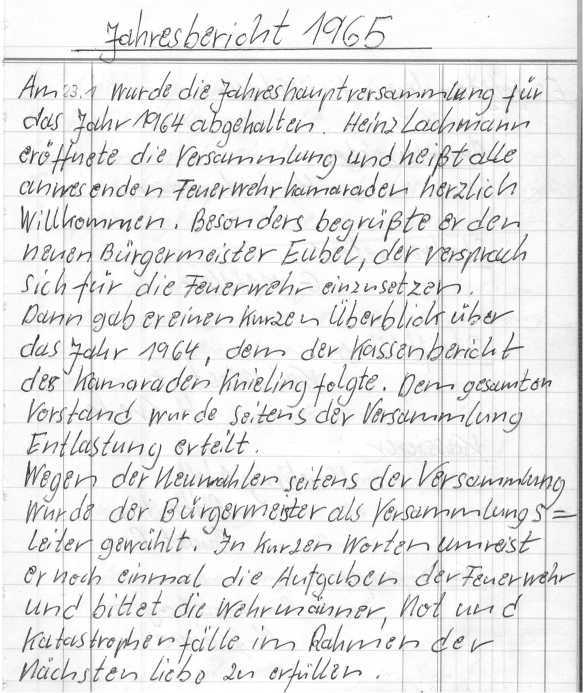 Jahresbericht 1965
Am 23.1 wurde die Jahreshauptversammlung für
das Jahr 1964 abgehalten. Heinz Lachmann
eröffnete die Versammlung und heißt alle
anwesenden Feuerwehrkamaraden herzlich
Willkommen. Besonders begrüßte er den
neuen Bürgermeister Eubel, der versprach
sich für die Feuerwehr einzusetzen.
Dann gab er einen kurzen Überblick über
das Jahr 1964, dem der Kassenbericht
des Kamaraden Knieling folgte. Dem gesamten
Vorstand wurde seitens der Versammlung
Entlastung erteilt.
Wegen der Neuwahlen seitens der Versammlung
wurde der Bürgermeister als Versammlungs=
Leiter gewählt. In kurzen Worten umreist
er noch einmal die Aufgaben der Feuerwehr
und bittet die Wehrmänner, Not und
Katastrophenfälle im Rahmen der
Nächsten liebe zu erfüllen.